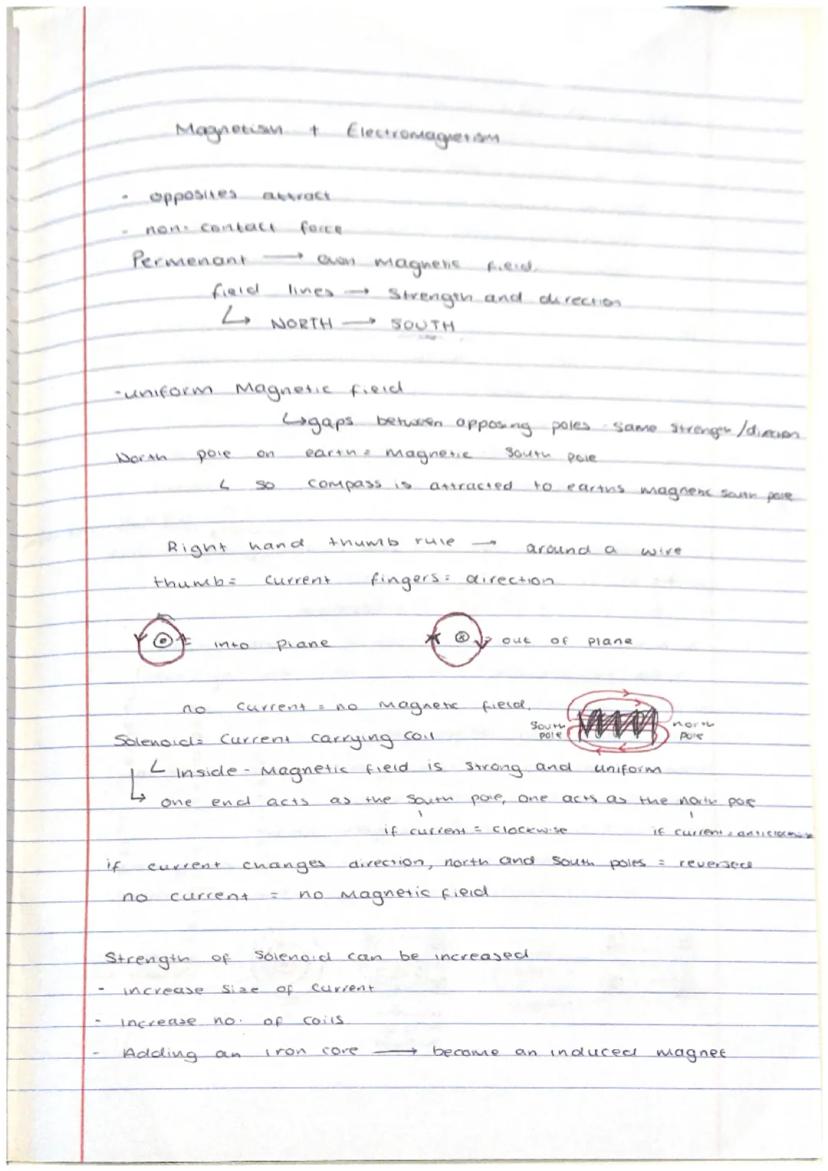 Magnetism + Electromagnetism
- opposites attract
- non-contact force
Permenant → own magnetic field.
field lines → Strength and direction
↳ NORTH → SOUTH
-uniform Magnetic field
↳gaps between opposing poles same strength/direction
North pole on earth = magnetic south pole
↳ so compass is attracted to earths magnetic south pole
Right hand thumb rule → around a wire
thumb = current fingers = direction
into plane out of plane
no current = no magnetic field.
south pole north pole
Solenoid = Current carrying coil
↳ Inside - Magnetic field is strong and uniform
↳ one end acts as the south pole, one acts as the north pole
if current = clockwise if current = anticlockwise
if current changes direction, north and south poles = reversed
no current = no Magnetic field
Strength of Solenoid can be increased
- increase size of current
- increase no. of coils
- Adding an iron core → become an induced magnet